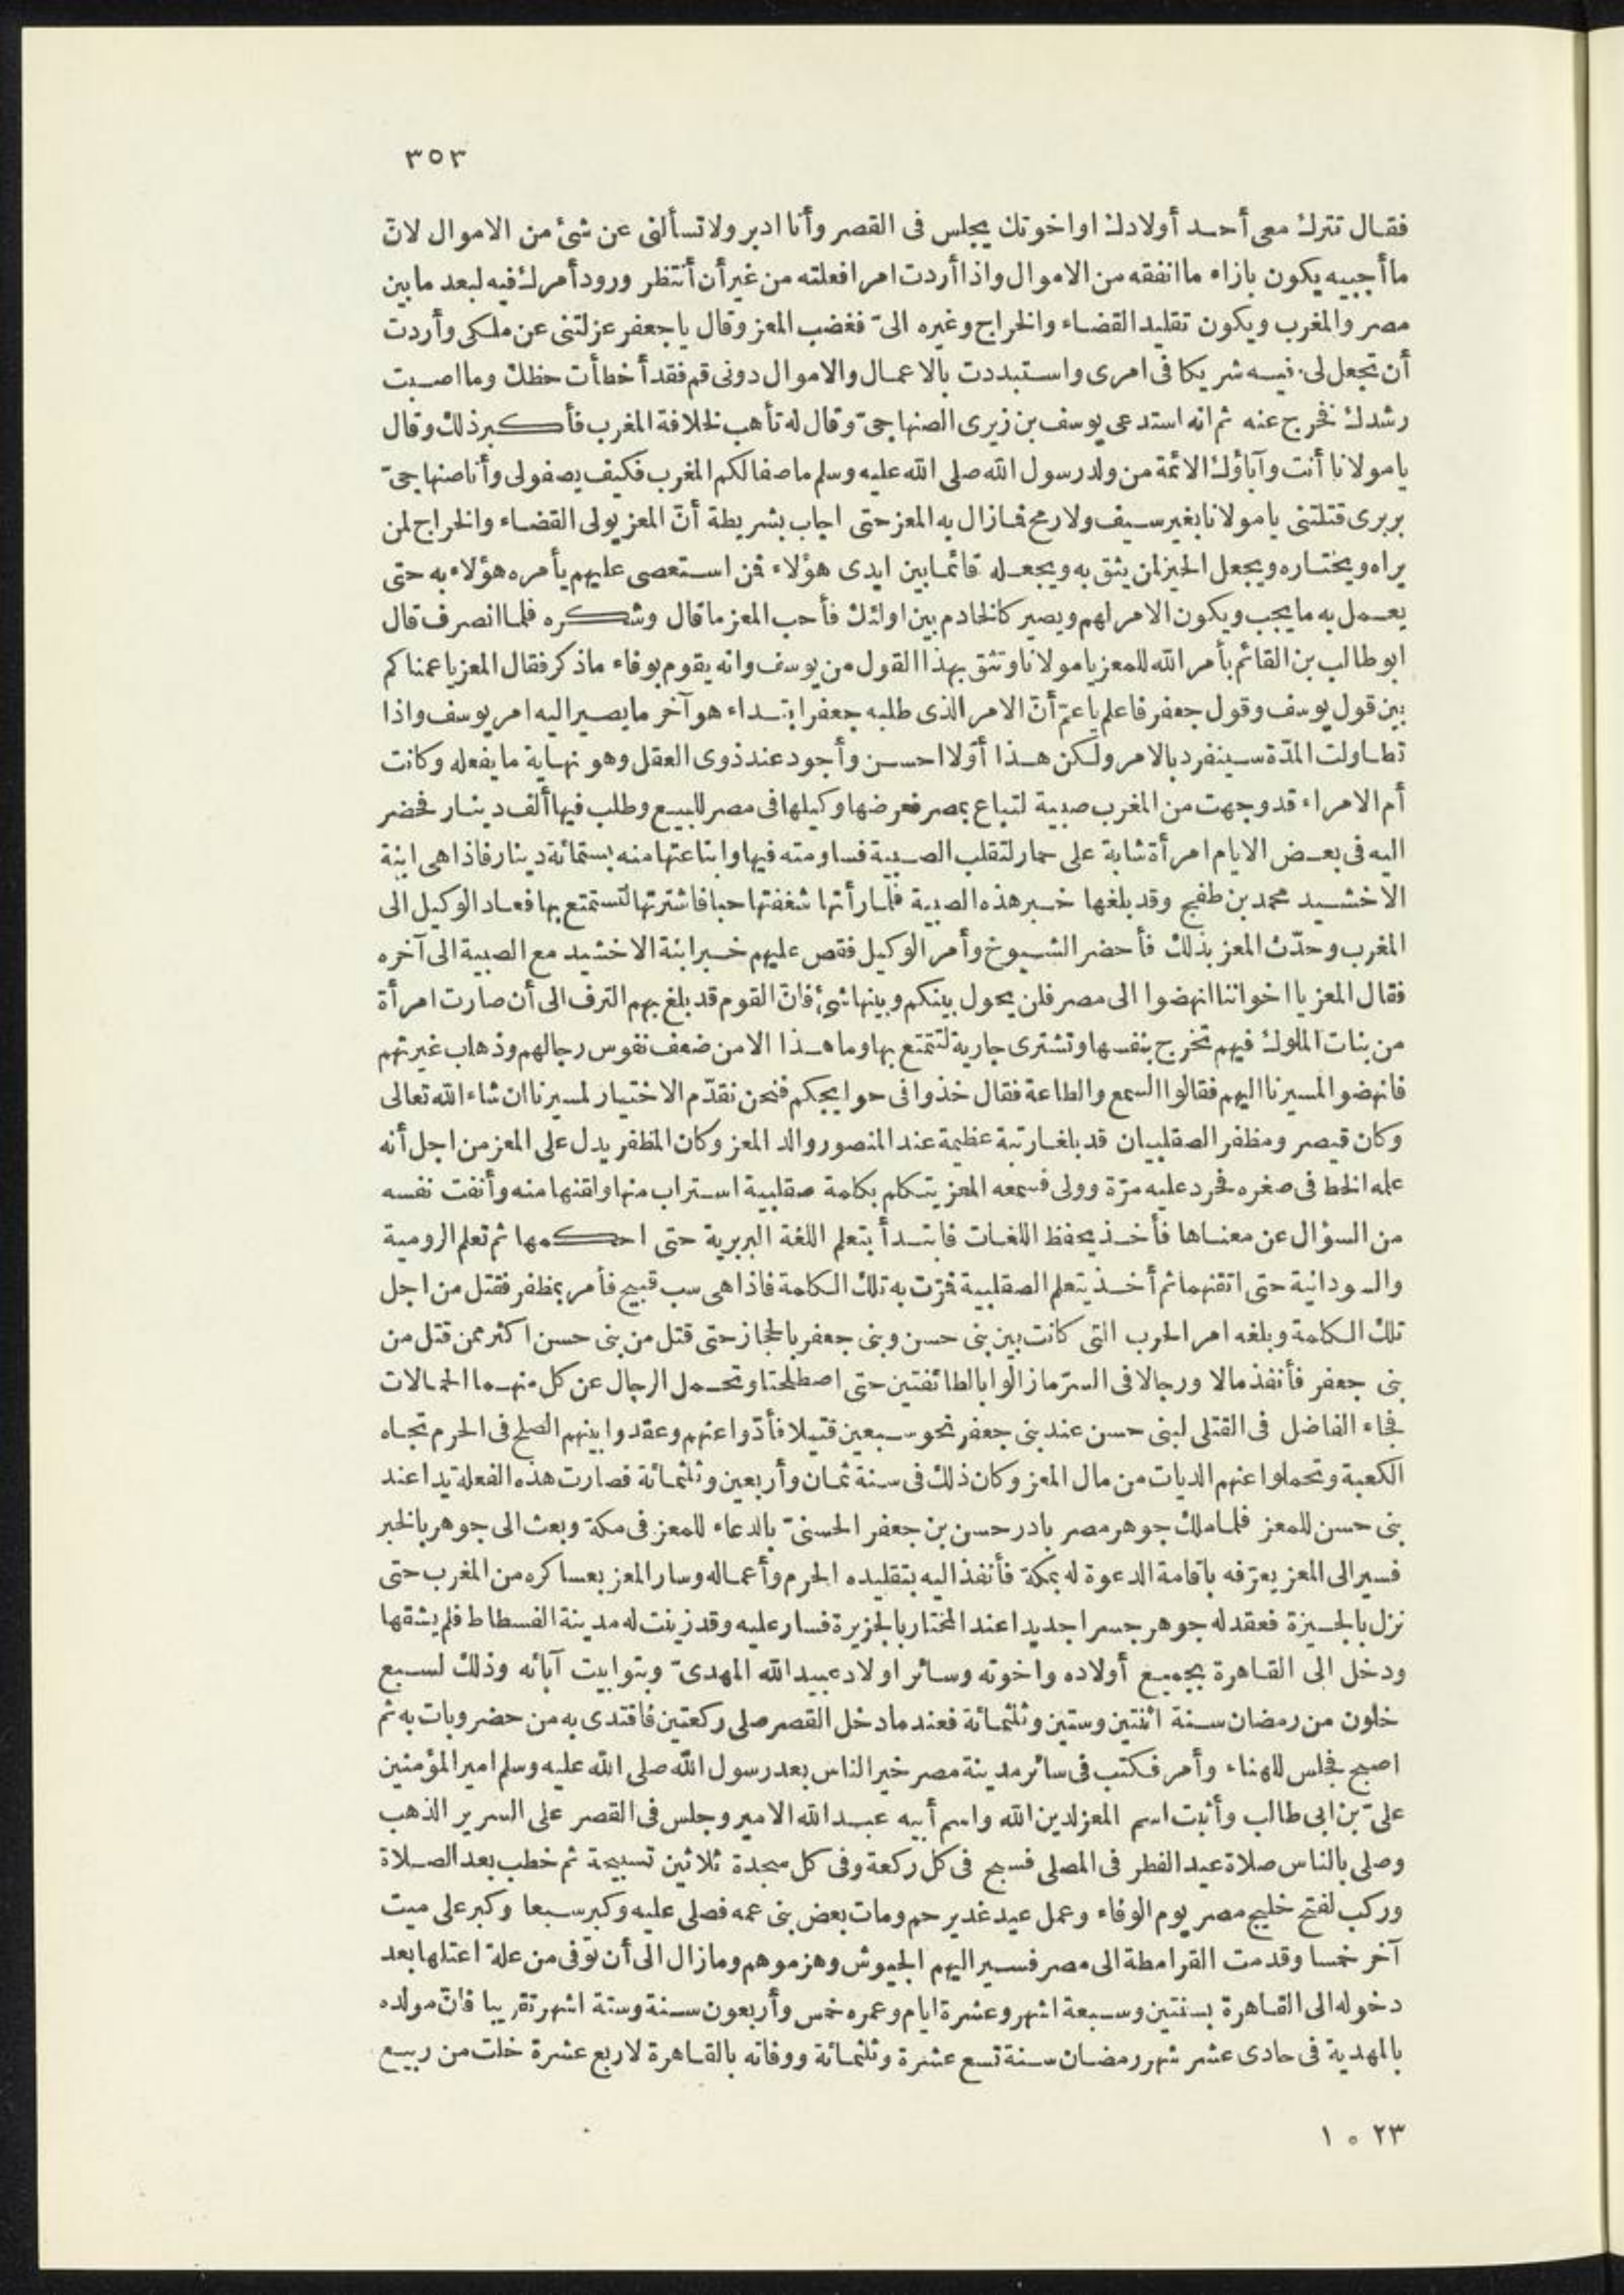 ٣٥٣
فقال تترك معى أحد أولادك او اخوتك يجلس فى القصر وأنا ادبر ولا تسألنى عن شئ من الاموال لانّ
ما أجبيه يكون بازاء ما انفقه من الاموال واذا أردت امرا فعلته من غير أن أنتظر ورود أمرك فيه لبعد ما بين
مصر والمغرب ويكون تقليد القضاء والخراج وغيره الىّ فغضب المعز وقال يا جعفر عزلتنى عن ملكى وأردت
أن تجعل لى فيه شريكا فى امرى واستبددت بالاعمال والاموال دونى قم فقد أخطأت حظك وما اصبت
رشدك فخرج عنه ثم انه استدعى يوسف بن زيرى الصنهاجىّ وقال له تأهب لخلافة المغرب فأكبر ذلك وقال
يا مولانا أنت وآباؤك الائمة من ولد رسول الله صلى الله عليه وسلم ما صفا لكم المغرب فكيف يصفو لى وأنا صنهاجىّ
بربرى قتلتنى يا مولانا بغير سيف ولا رمح فما زال به المعز حتى اجاب بشريطة أنّ المعز يولى القضاء والخراج لمن
يراه ويختاره ويجعل الحيز لمن يثق به ويجعله قائما بين ايدى هؤلاء فمن استعصى عليهم يأمره هؤلاء به حتى
يعمل به ما يجب ويكون الامر لهم ويصير كالخادم بين اولئك فأحب المعز ما قال وشكره فلما انصرف قال
ابو طالب بن القائم بأمر الله للمعز يا مولانا وتثق بهذا القول من يوسف وانه يقوم بوفاء ما ذكر فقال المعز يا عمنا كم
بين قول يوسف وقول جعفر فاعلم يا عمّ أنّ الامر الذى طلبه جعفر ابتداء هو آخر ما يصير اليه امر يوسف واذا
تطاولت المدّة سينفرد بالامر ولكن هذا أوّلا احسن وأجود عند ذوى العقل وهو نهاية ما يفعله وكانت
أم الامراء قد وجهت من المغرب صبية لتباع بمصر فعرضها وكيلها فى مصر للبيع وطلب فيها ألف دينار فحضر
اليه فى بعض الايام امرأة شابة على حمار لتقلب الصبية فساومته فيها وابتاعتها منه بستمائة دينار فاذا هى ابنة
الاخشيد محمد بن طفج وقد بلغها خبر هذه الصبية فلما رأتها شغفتها حبا فاشترتها لتستمتع بها فعاد الوكيل الى
المغرب وحدّث المعز بذلك فأحضر الشيوخ وأمر الوكيل فقص عليهم خبر ابنة الاخشيد مع الصبية الى آخره
فقال المعز يا اخواننا انهضوا الى مصر فلن يحول بينكم وبينها شئ فانّ القوم قد بلغ بهم الترف الى أن صارت امرأة
من بنات الملوك فيهم تخرج بنفسها وتشترى جارية لتتمتع بها وما هذا الا من ضعف نفوس رجالهم وذهاب غيرتهم
فانهضوا لمسيرنا اليهم فقالوا السمع والطاعة فقال خذوا فى حوايجكم فنحن نقدّم الاختيار لمسيرنا ان شاء الله تعالى
وكان قيصر ومظفر الصقلبيان قد بلغا رتبة عظيمة عند المنصور والد المعز وكان المظفر يدل على المعز من اجل أنه
علمه الخط فى صغره فحرد عليه مرّة وولى فسمعه المعز يتكلم بكلمة صقلبية استراب منها ولقنها منه وأنفت نفسه
من السؤال عن معناها فأخذ يحفظ اللغات فابتدأ بتعلم اللغة البربرية حتى احكمها ثم تعلم الرومية
والسودانية حتى اتقنهما ثم أخذ يتعلم الصقلبية فمرّت به تلك الكلمة فاذا هى سب قبيح فأمر بمظفر فقتل من اجل
تلك الكلمة وبلغه امر الحرب التى كانت بين بنى حسن وبنى جعفر بالحجاز حتى قتل من بنى حسن اكثر ممن قتل من
بنى جعفر فأنفذ مالا ورجالا فى السرّ ما زالوا بالطائفتين حتى اصطلحتا وتحمل الرجال عن كل منهما الحمالات
فجاء الفاضل فى القتلى لبنى حسن عند بنى جعفر نحو سبعين قتيلا فأدّوا عنهم وعقدوا بينهم الصلح فى الحرم تجاه
الكعبة وتحملوا عنهم الديات من مال المعز وكان ذلك فى سنة ثمان وأربعين وثلثمائة فصارت هذه الفعلة يدا عند
بنى حسن للمعز فلما ملك جوهر مصر بادر حسن بن جعفر الحسنىّ بالدعاء للمعز فى مكة وبعث الى جوهر بالخبر
فسير الى المعز يعرّفه باقامة الدعوة له بمكة فأنفذ اليه بتقليده الحرم وأعماله وسار المعز بعساكره من المغرب حتى
نزل بالجيزة فعقد له جوهر جسرا جديدا عند المختار بالجزيرة فسار عليه وقد زينت له مدينة الفسطاط فلم يشقها
ودخل الى القاهرة بجميع أولاده واخوته وسائر اولاد عبيد الله المهدىّ وبتوابيت آبائه وذلك لسبع
خلون من رمضان سنة اثنتين وستين وثلثمائة فعند ما دخل القصر صلى ركعتين فاقتدى به من حضر وبات به ثم
اصبح فجلس للهناء وأمر فكتب فى سائر مدينة مصر خير الناس بعد رسول الله صلى الله عليه وسلم امير المؤمنين
علىّ بن ابى طالب وأثبت اسم المعز لدين الله واسم أبيه عبد الله الامير وجلس فى القصر على السرير الذهب
وصلى بالناس صلاة عيد الفطر فى المصلى فسبح فى كل ركعة وفى كل سجدة ثلاثين تسبيحة ثم خطب بعد الصلاة
وركب لفتح خليج مصر يوم الوفاء وعمل عيد غدير خم ومات بعض بنى عمه فصلى عليه وكبر سبعا وكبر على ميت
آخر خمسا وقدمت القرامطة الى مصر فسير اليهم الجيوش وهزموهم وما زال الى أن توفى من علة اعتلها بعد
دخوله الى القاهرة بسنتين وسبعة اشهر وعشرة ايام وعمره خمس وأربعون سنة وستة اشهر تقريبا فانّ مولده
بالمهدية فى حادى عشر شهر رمضان سنة تسع عشرة وثلثمائة ووفاته بالقاهرة لاربع عشرة خلت من ربيع
٢٣ ه ١